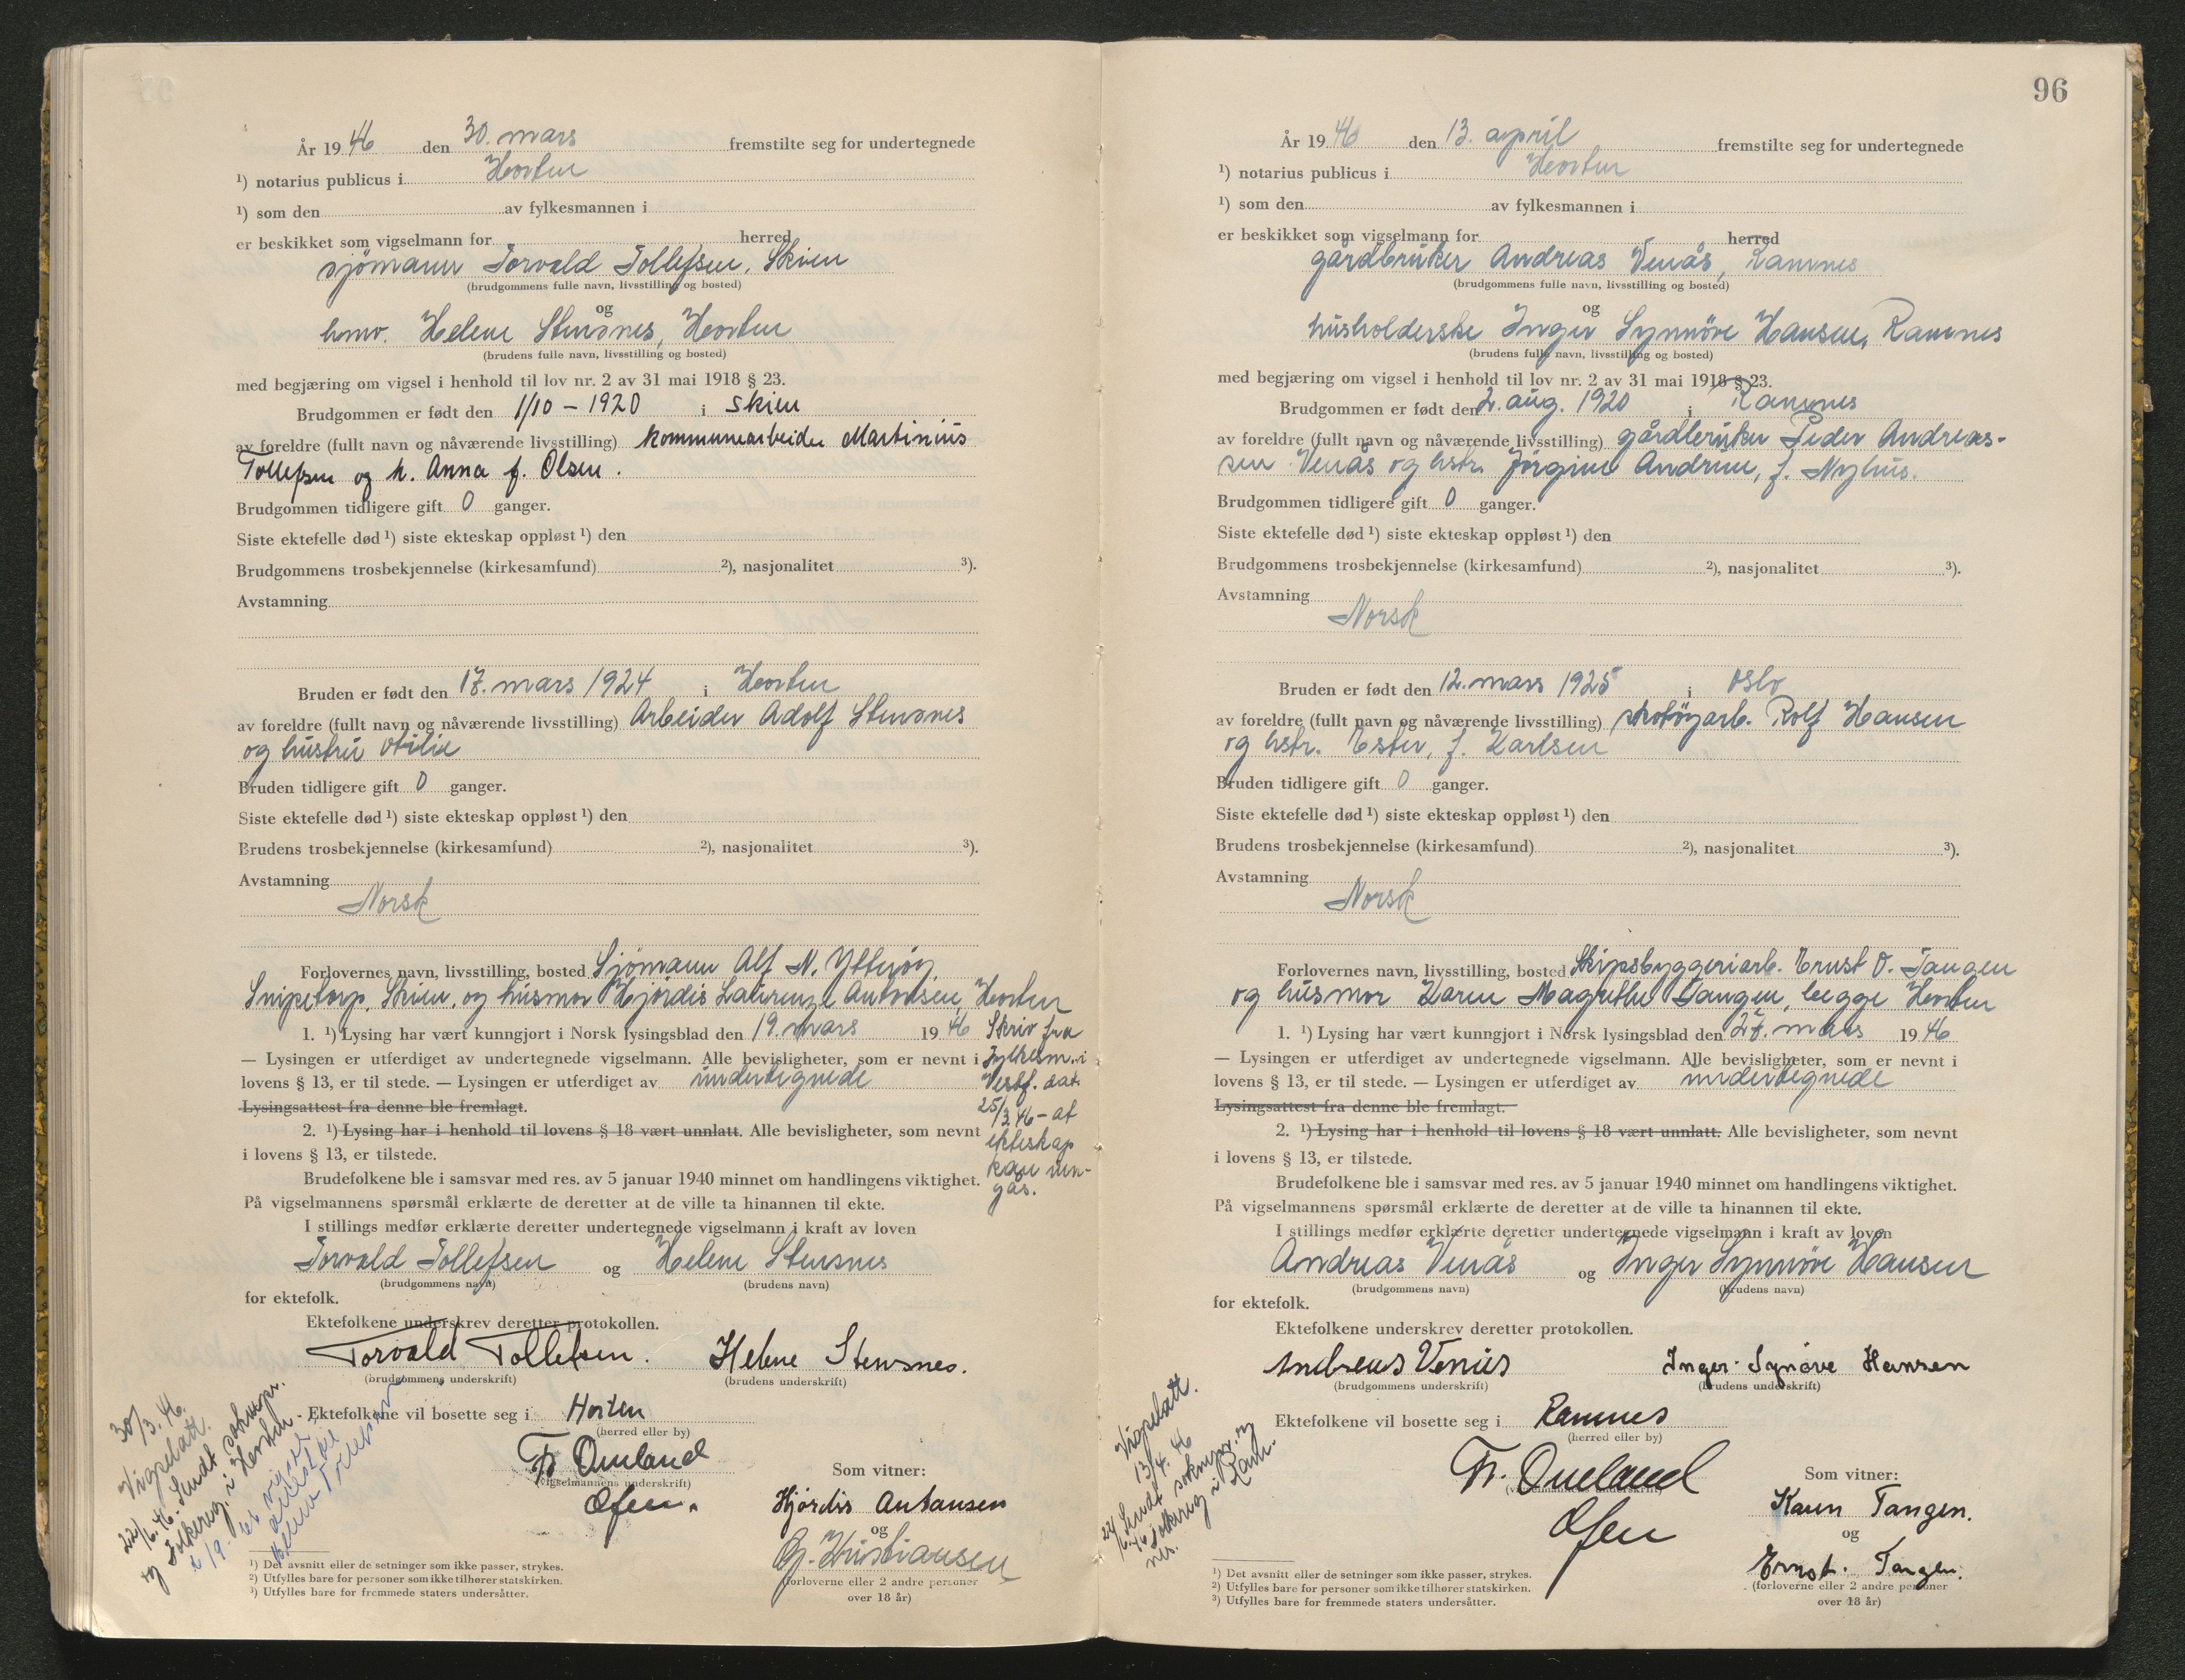 År 19 46 den 30. mars fremstilte seg for undertegnede
¹) notarius publicus i Horten
¹) som den av fylkesmannen i
er beskikket som vigselmann for herred
sjömann Torvald Tollefsen, Skien
(brudgommens fulle navn, livsstilling og bosted)
og
hmv. Helene Stensnes, Horten
(brudens fulle navn, livsstilling og bosted)
med begjæring om vigsel i henhold til lov nr. 2 av 31 mai 1918 § 23.
Brudgommen er født den 1/10 - 1920 i Skien
av foreldre (fullt navn og nåværende livsstilling) kommunearbeider Martinius
Tollefsen og h. Anna f. Olsen.
Brudgommen tidligere gift 0 ganger.
Siste ektefelle død ¹) siste ekteskap oppløst ¹) den
Brudgommens trosbekjennelse (kirkesamfund) ²), nasjonalitet ³).
Avstamning
Bruden er født den 17. mars 1924 i Horten
av foreldre (fullt navn og nåværende livsstilling) Arbeider Adolf Stensnes
og hustru Otilie
Bruden tidligere gift 0 ganger.
Siste ektefelle død ¹) siste ekteskap oppløst ¹) den
Brudens trosbekjennelse (kirkesamfund) ²), nasjonalitet ³).
Avstamning
Norsk
Forlovernes navn, livsstilling, bosted Sjömann Alf N. Ytterøy,
Snipetorp, Skien, og husmor Hjördis Laurenze Antonsen, Horten
1. ¹) Lysing har vært kunngjort i Norsk lysingsblad den 19. mars 19 46
— Lysingen er utferdiget av undertegnede vigselmann. Alle bevisligheter, som er nevnt i
lovens § 13, er til stede. — Lysingen er utferdiget av undertegnede
Lysingsattest fra denne ble fremlagt.
2. ¹) Lysing har i henhold til lovens § 18 vært unnlatt. Alle bevisligheter, som nevnt
i lovens § 13, er tilstede.
Skriv fra
fylkesm. i
Vestf. dat.
25/3 46 - at
ekteskap
kan inn-
gås.
Brudefolkene ble i samsvar med res. av 5 januar 1940 minnet om handlingens viktighet.
På vigselmannens spørsmål erklærte de deretter at de ville ta hinannen til ekte.
I stillings medfør erklærte deretter undertegnede vigselmann i kraft av loven
Torvald Tollefsen og Helene Stensnes
(brudgommens navn) (brudens navn)
for ektefolk.
Ektefolkene underskrev deretter protokollen.
Torvald Tollefsen. Helene Stensnes.
(brudgommens underskrift) (brudens underskrift)
Ektefolkene vil bosette seg i Horten
(herred eller by)
Fr. Omland
(vigselmannens underskrift)
Som vitner:
Hjördis Antonsen
og
Kristiansen
(forloverne eller 2 andre personer
over 18 år)
30/3. 46.
Vigselatt.
22/6. 46. Sendt soknepr.
og folkereg. i Horten.
Helene Tollefsen
¹) Det avsnitt eller de setninger som ikke passer, strykes.
²) Utfylles bare for personer som ikke tilhører statskirken.
³) Utfylles bare for fremmede staters undersåtter.
96
År 19 46 den 13. april fremstilte seg for undertegnede
¹) notarius publicus i Horten
¹) som den av fylkesmannen i
er beskikket som vigselmann for herred
gårdbruker Andreas Venås, Ramnes
(brudgommens fulle navn, livsstilling og bosted)
og
husholderske Inger Synnöve Hansen, Ramnes
(brudens fulle navn, livsstilling og bosted)
med begjæring om vigsel i henhold til lov nr. 2 av 31 mai 1918 § 23.
Brudgommen er født den 2. aug. 1920 i Ramnes
av foreldre (fullt navn og nåværende livsstilling) gårdbruker Peder Andreas-
sen Venås og hstr. Jörgine Andrine, f. Nyhus.
Brudgommen tidligere gift 0 ganger.
Siste ektefelle død ¹) siste ekteskap oppløst ¹) den
Brudgommens trosbekjennelse (kirkesamfund) ²), nasjonalitet ³).
Avstamning
Norsk
Bruden er født den 12. mars 1925 i Oslo
av foreldre (fullt navn og nåværende livsstilling) skotöyarb. Rolf Hansen
og hstr. Ester, f. Karlsen
Bruden tidligere gift 0 ganger.
Siste ektefelle død ¹) siste ekteskap oppløst ¹) den
Brudens trosbekjennelse (kirkesamfund) ²), nasjonalitet ³).
Avstamning
Norsk
Forlovernes navn, livsstilling, bosted Skipsbyggeriarb. Ernst O. Tangen
og husmor Karen Magrethe Tangen, begge Horten
1. ¹) Lysing har vært kunngjort i Norsk lysingsblad den 27. mars 19 46
— Lysingen er utferdiget av undertegnede vigselmann. Alle bevisligheter, som er nevnt i
lovens § 13, er til stede. — Lysingen er utferdiget av undertegnede
Lysingsattest fra denne ble fremlagt.
2. ¹) Lysing har i henhold til lovens § 18 vært unnlatt. Alle bevisligheter, som nevnt
i lovens § 13, er tilstede.
Brudefolkene ble i samsvar med res. av 5 januar 1940 minnet om handlingens viktighet.
På vigselmannens spørsmål erklærte de deretter at de ville ta hinannen til ekte.
I stillings medfør erklærte deretter undertegnede vigselmann i kraft av loven
Andreas Venås og Inger Synnöve Hansen
(brudgommens navn) (brudens navn)
for ektefolk.
Ektefolkene underskrev deretter protokollen.
Andreas Venås Inger Synöve Hansen
(brudgommens underskrift) (brudens underskrift)
Ektefolkene vil bosette seg i Ramnes
(herred eller by)
Fr. Omland
Som vitner:
Karen Tangen.
og
Ernst. Tangen.
(forloverne eller 2 andre personer
over 18 år)
Vigselatt.
13/4. 46
22/6. 46 Sendt soknepr. og
folkereg. i Ram-
nes.
¹) Det avsnitt eller de setninger som ikke passer, strykes.
²) Utfylles bare for personer som ikke tilhører statskirken.
³) Utfylles bare for fremmede staters undersåtter.